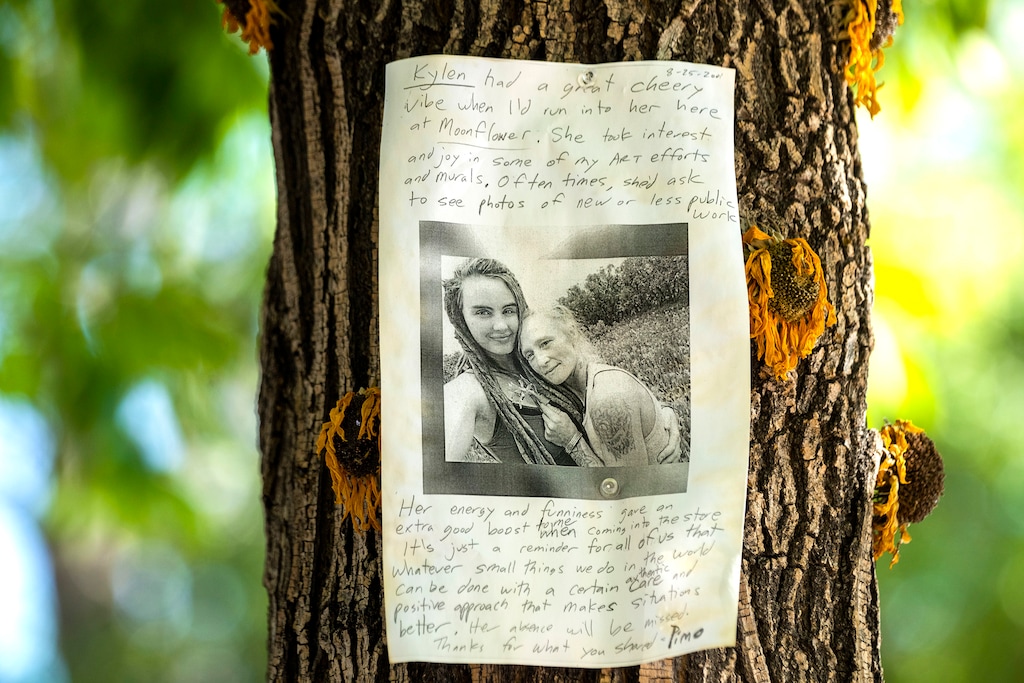 8-25-2021
Kylen had a great cheery
vibe when I'd run into her here
at Moonflower. She took interest
and joy in some of my ART efforts
and murals. Often times, she'd ask
to see photos of new or less public
work
Her energy and funniness gave an
extra good boost to me when coming into the store
It's just a reminder for all of us that
whatever small things we do in the world
can be done with a certain authentic care and
positive approach that makes situations
better. Her absence will be missed.
Thanks for what you shared - Pimo